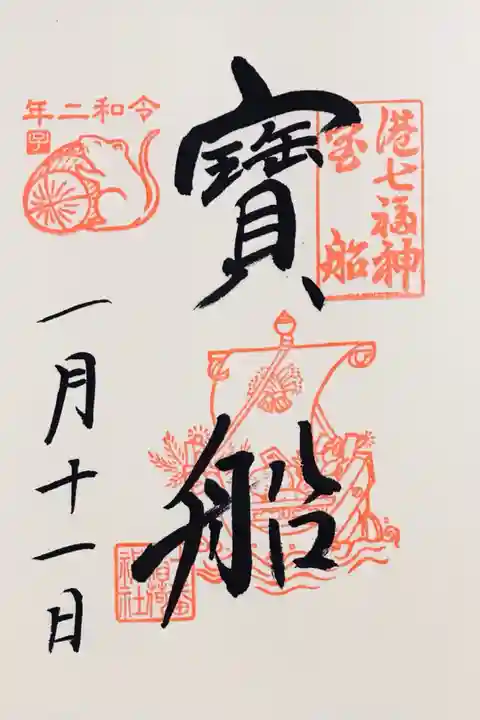 港七福神
宝船
寶船
十番
稲荷
神社
令和二年
子
一月十一日